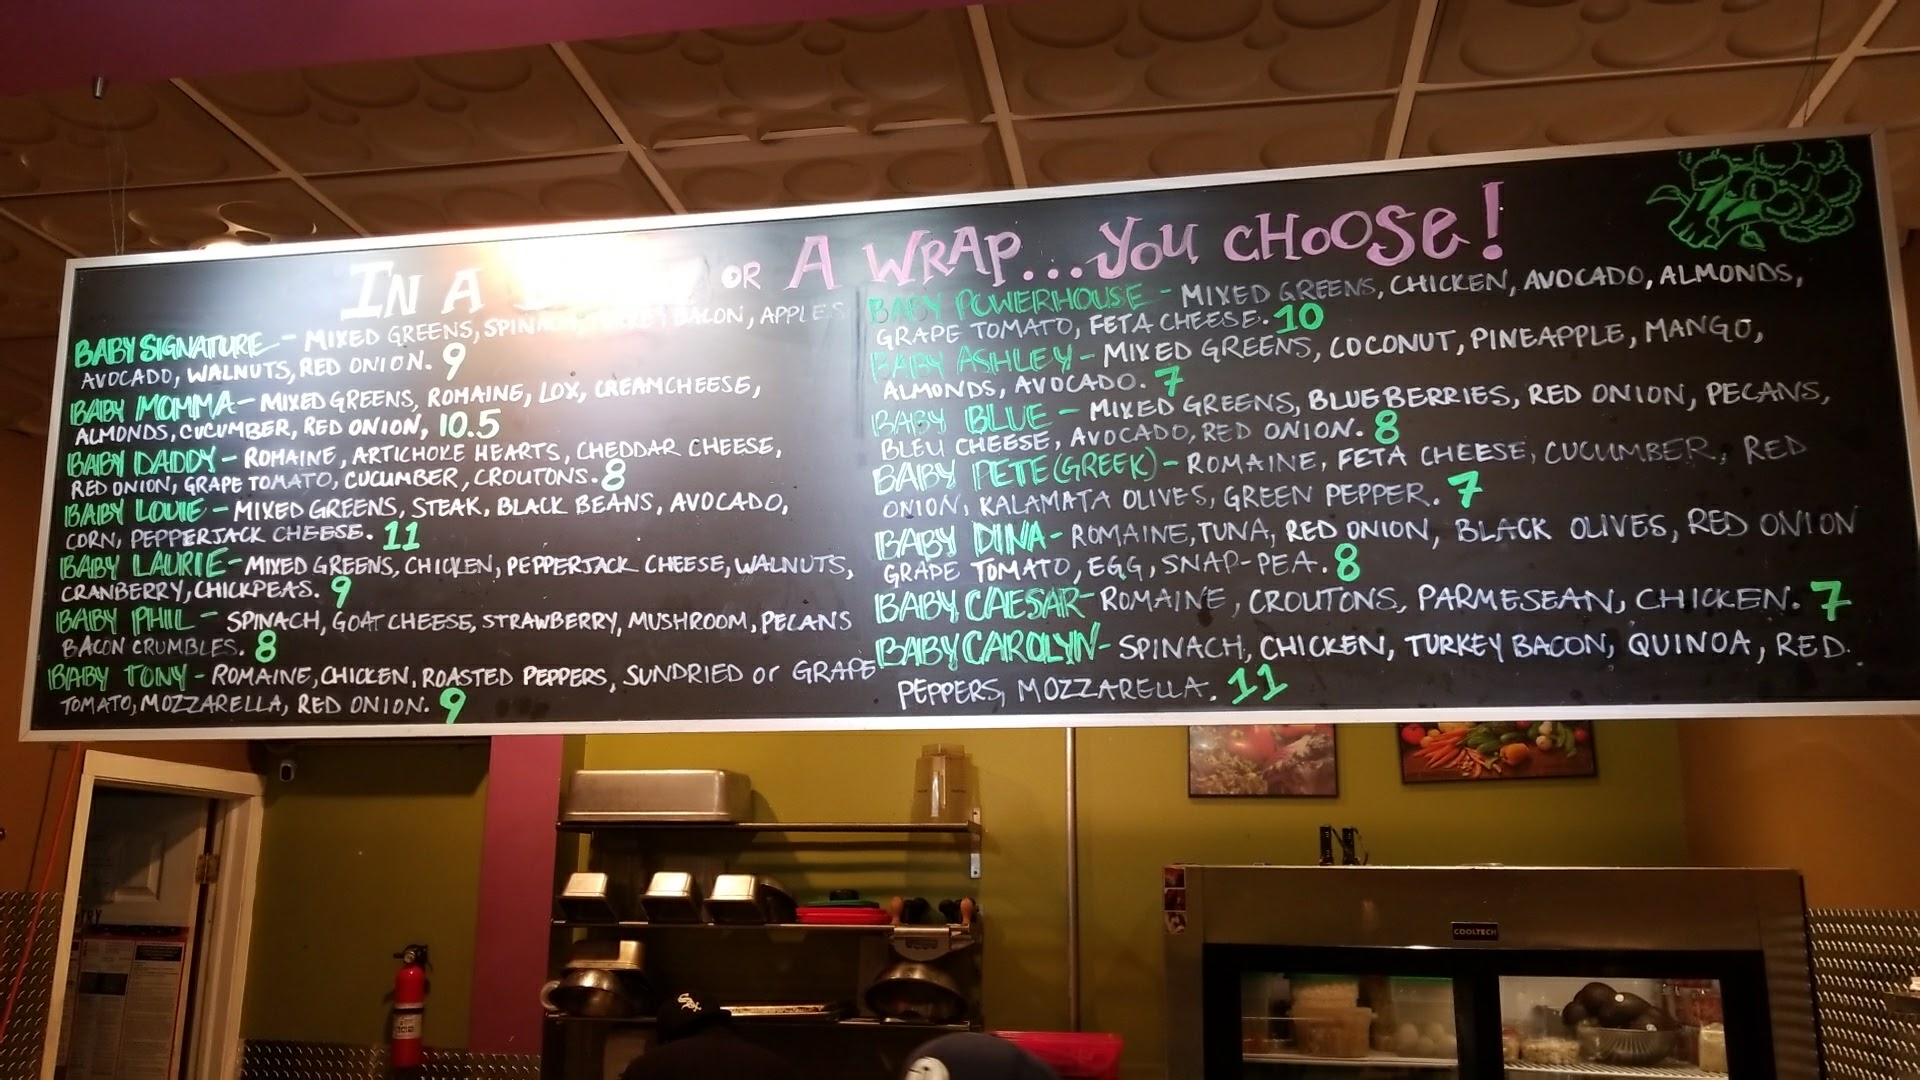 IN A OR A WRAP...YOU CHOOSE!
BABY SIGNATURE - MIXED GREENS, SPINACH, TURKEY BACON, APPLES
AVOCADO, WALNUTS, RED ONION. 9
BABY MOMMA - MIXED GREENS, ROMAINE, LOX, CREAMCHEESE,
ALMONDS, CUCUMBER, RED ONION, 10.5
BABY DADDY - ROMAINE, ARTICHOKE HEARTS, CHEDDAR CHEESE,
RED ONION, GRAPE TOMATO, CUCUMBER, CROUTONS. 8
BABY LOUIE - MIXED GREENS, STEAK, BLACK BEANS, AVOCADO,
CORN, PEPPERJACK CHEESE. 11
BABY LAURIE - MIXED GREENS, CHICKEN, PEPPERJACK CHEESE, WALNUTS,
CRANBERRY, CHICKPEAS. 9
BABY PHIL - SPINACH, GOAT CHEESE, STRAWBERRY, MUSHROOM, PECANS
BACON CRUMBLES. 8
BABY TONY - ROMAINE, CHICKEN, ROASTED PEPPERS, SUNDRIED or GRAPE
TOMATO, MOZZARELLA, RED ONION. 9
BABY POWERHOUSE - MIXED GREENS, CHICKEN, AVOCADO, ALMONDS,
GRAPE TOMATO, FETA CHEESE. 10
BABY ASHLEY - MIXED GREENS, COCONUT, PINEAPPLE, MANGO,
ALMONDS, AVOCADO. 7
BABY BLUE - MIXED GREENS, BLUEBERRIES, RED ONION, PECANS,
BLEU CHEESE, AVOCADO, RED ONION. 8
BABY PETE (GREEK) - ROMAINE, FETA CHEESE, CUCUMBER, RED
ONION, KALAMATA OLIVES, GREEN PEPPER. 7
BABY DINA - ROMAINE, TUNA, RED ONION, BLACK OLIVES, RED ONION
GRAPE TOMATO, EGG, SNAP-PEA. 8
BABY CAESAR - ROMAINE, CROUTONS, PARMESEAN, CHICKEN. 7
BABY CAROLYN - SPINACH, CHICKEN, TURKEY BACON, QUINOA, RED
PEPPERS, MOZZARELLA. 11
COOLTECH
Sox